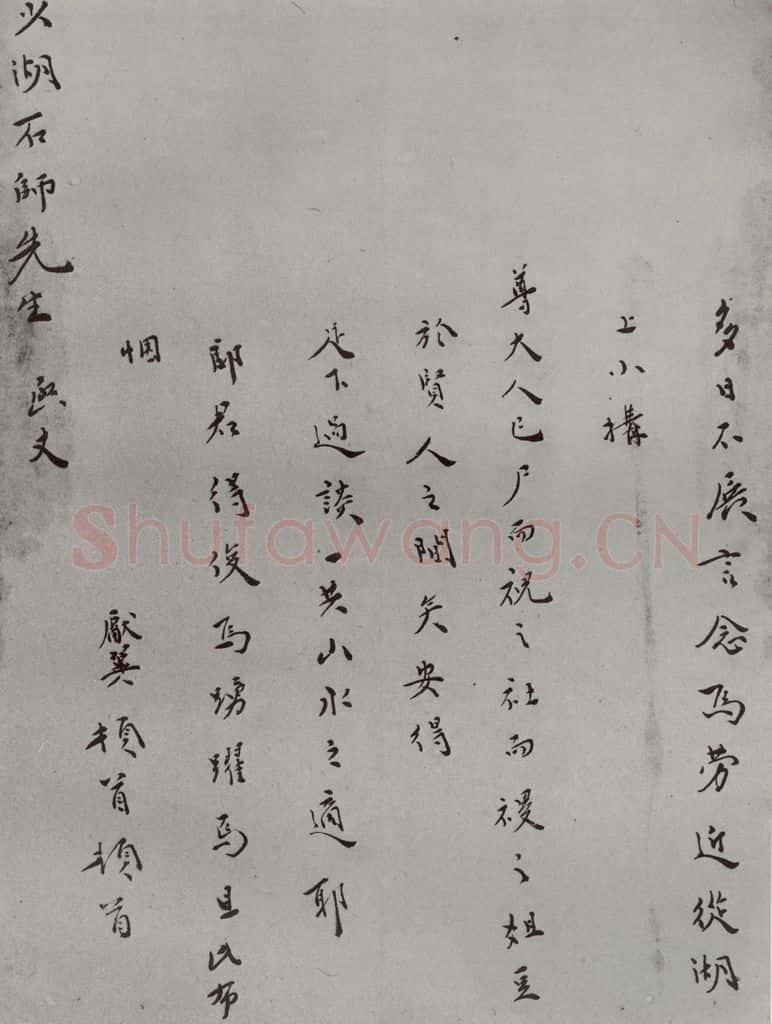 多日不展言念為勞近從湖
上小搆
尊大人已尸而祝之社而稷之俎豆
於賢人之間矣安得
足下過談一共山水之適耶
郎君得俊為踴躍焉且此布
悃
獻翼頓首頓首
湖石師先生 函丈
Shufawang.CN